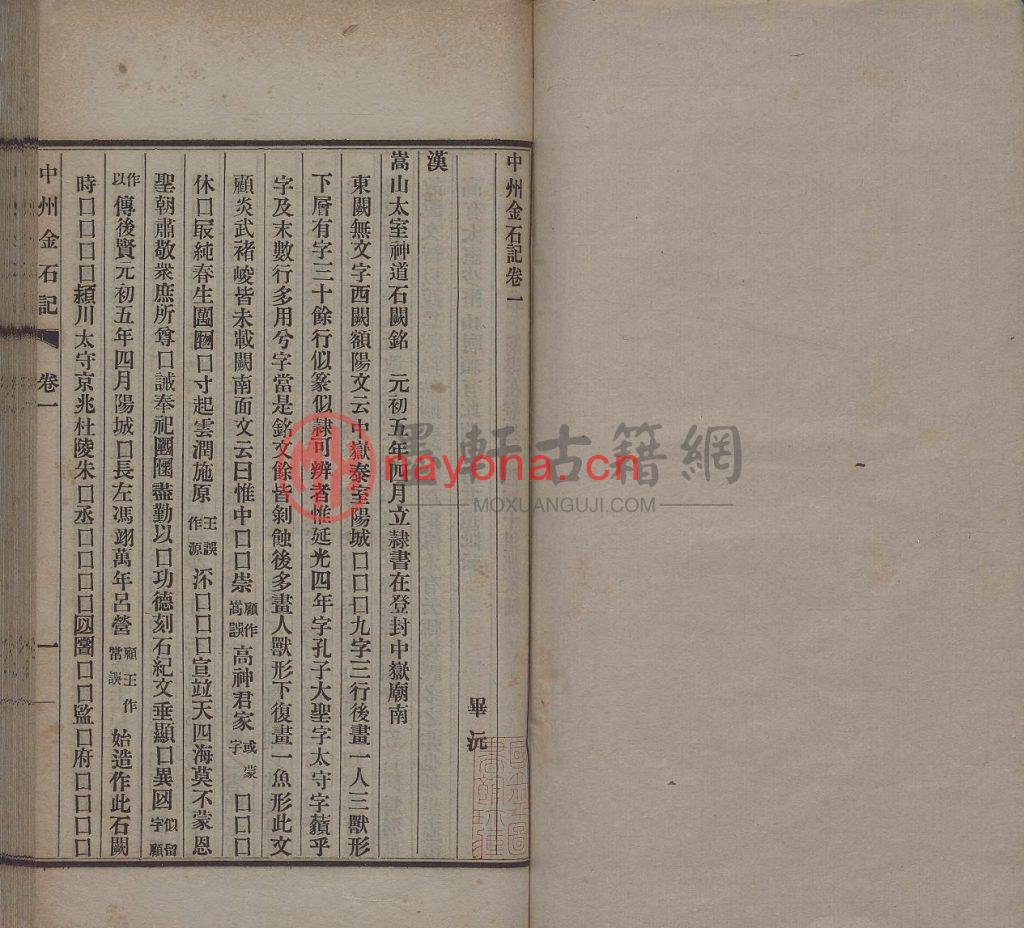 中州金石記卷一
畢沅
漢
嵩山太室神道石闕銘 元初五年四月立隸書在登封中嶽廟南
東闕無文字西闕額陽文云中嶽泰室陽城口口口九字三行後畫一人三獸形
下層有字三十餘行似篆似隸可辨者惟延光四年字孔子大聖字太守字蘈乎
字及末數行多用兮字當是銘文餘皆剝蝕後多畫人獸形下復畫一魚形此文
顧炎武褚峻皆未載闕南面文云曰惟中口口崇顧作嵩誤高神君家或蒙字口口口
休口冣純春生口寸起雲潤施原王誤作源口口口宣竝天四海莫不蒙恩
聖朝肅敬衆庶所尊口誡奉祀盡勤以口功德刻石紀文垂顯口異似留字顧
作以傳後賢元初五年四月陽城口長左馮翊萬年呂營顧王作常誤始造作此石闕
時口口口口潁川太守京兆杜陵朱口丞口口口口口口監口府口口口口
中州金石記 卷一 一
墨軒古籍網
MOXUANGUJI.COM
nayona.cn